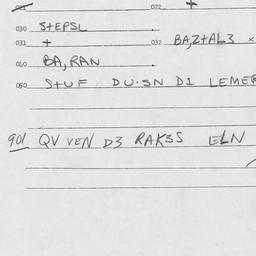 022 +
030 S+EPSL
031 +
032 BA,Z+AL3 ×
040 BA, RAN
050 S+UF DU·SN D1 LEMER
901 QV VEN D3 RAK3S ELN